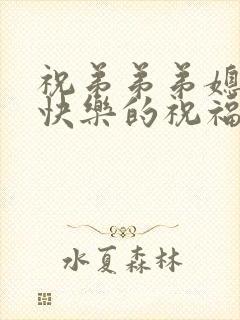 祝弟弟弟媳
快樂的祝福
水夏森林